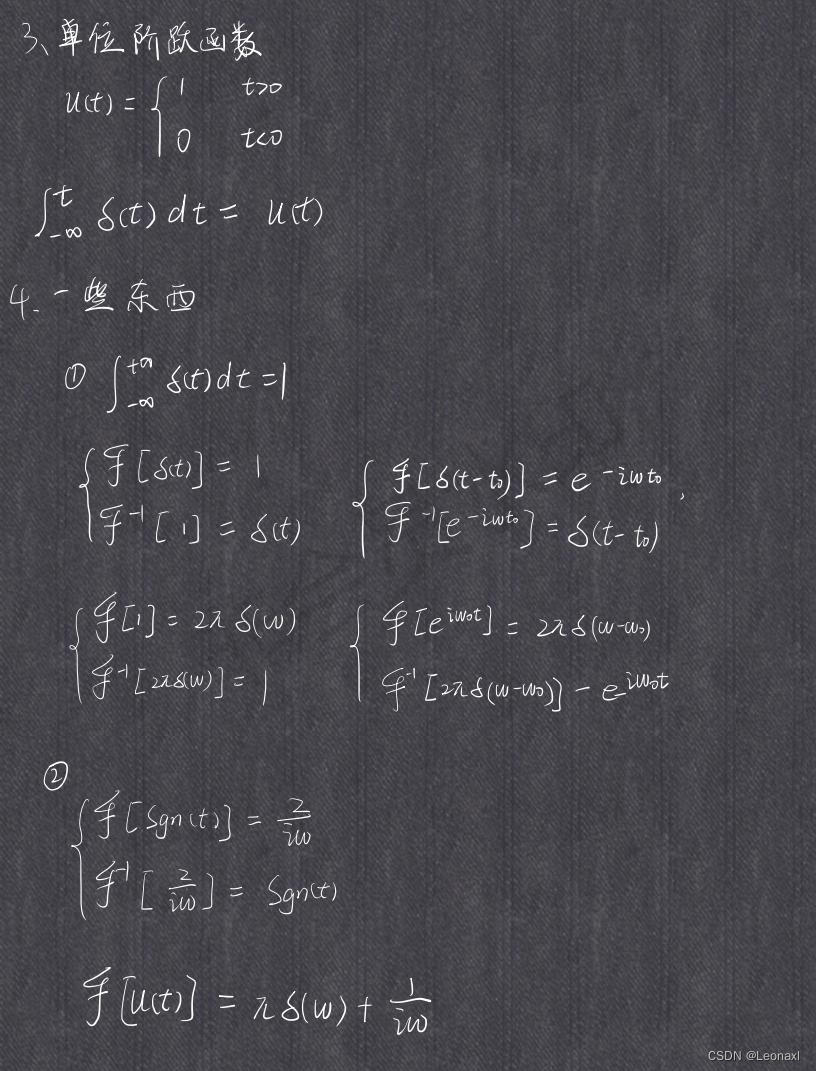 3、单位阶跃函数
u(t) = { 1 t>0
0 t<0
∫_{-∞}^{t} δ(t) dt = u(t)
4、一些东西
① ∫_{-∞}^{+∞} δ(t) dt = 1
{ ℱ[δ(t)] = 1
ℱ⁻¹[1] = δ(t)
{ ℱ[δ(t-t₀)] = e^{-iωt₀},
ℱ⁻¹[e^{-iωt₀}] = δ(t-t₀)
{ ℱ[1] = 2πδ(ω)
ℱ⁻¹[2πδ(ω)] = 1
{ ℱ[e^{iω₀t}] = 2πδ(ω-ω₀)
ℱ⁻¹[2πδ(ω-ω₀)] - e^{iω₀t}
②
{ ℱ[Sgn(t)] = 2/(iω)
ℱ⁻¹[2/(iω)] = Sgn(t)
ℱ[u(t)] = πδ(ω) + 1/(iω)
CSDN @Leonaxl